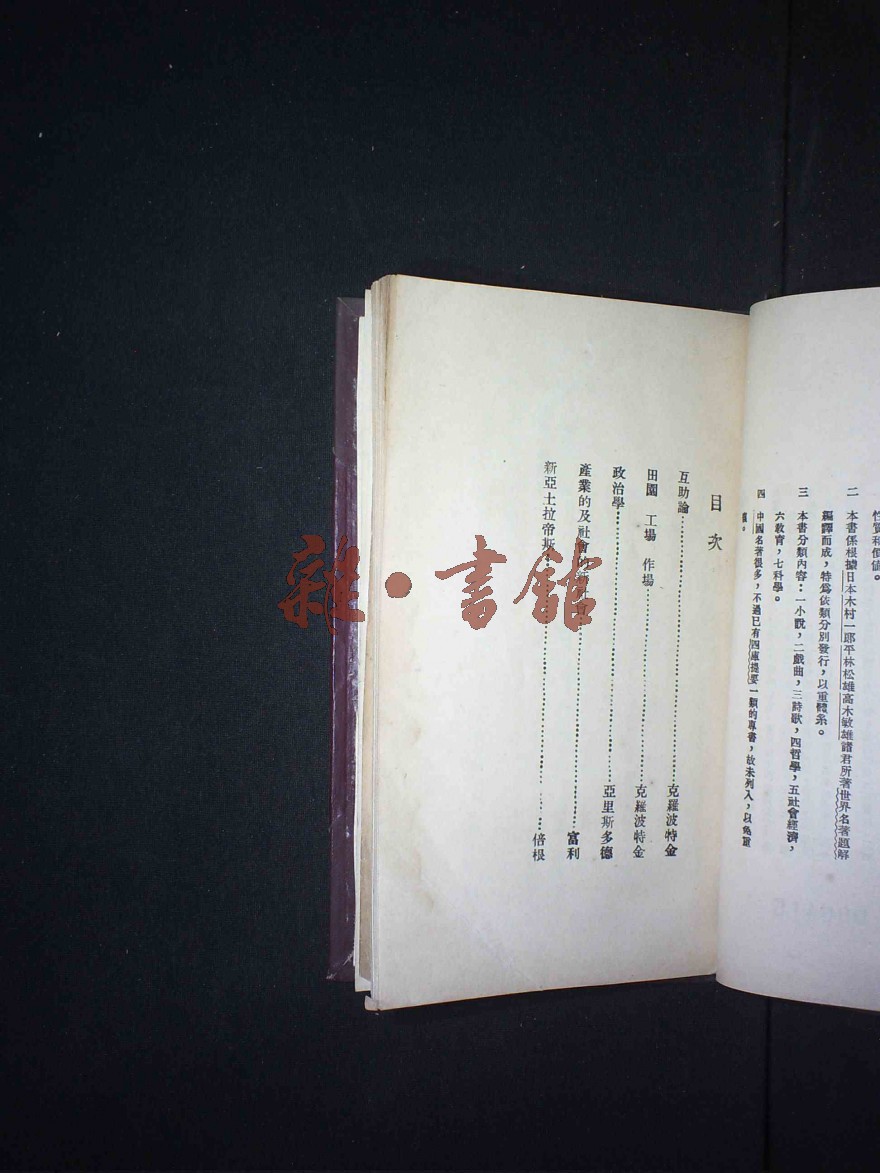 性質和價値。
二 本書係根據日本木村一郎平林松雄高木敏雄諸君所著世界名著題解
編譯而成，特爲依類分別發行，以重體系。
三 本書分類內容：一小說，二戲曲，三詩歌，四哲學，五社會經濟，
六敎育，七科學。
四 中國名著很多，不過已有四庫提要一類的專書，故未列入，以免重
複。
目次
互助論……克羅波特金
田園 工場 作場……克羅波特金
政治學……亞里斯多德
產業的及社會的……富利
新亞土拉帝斯……倍根
雜·書館